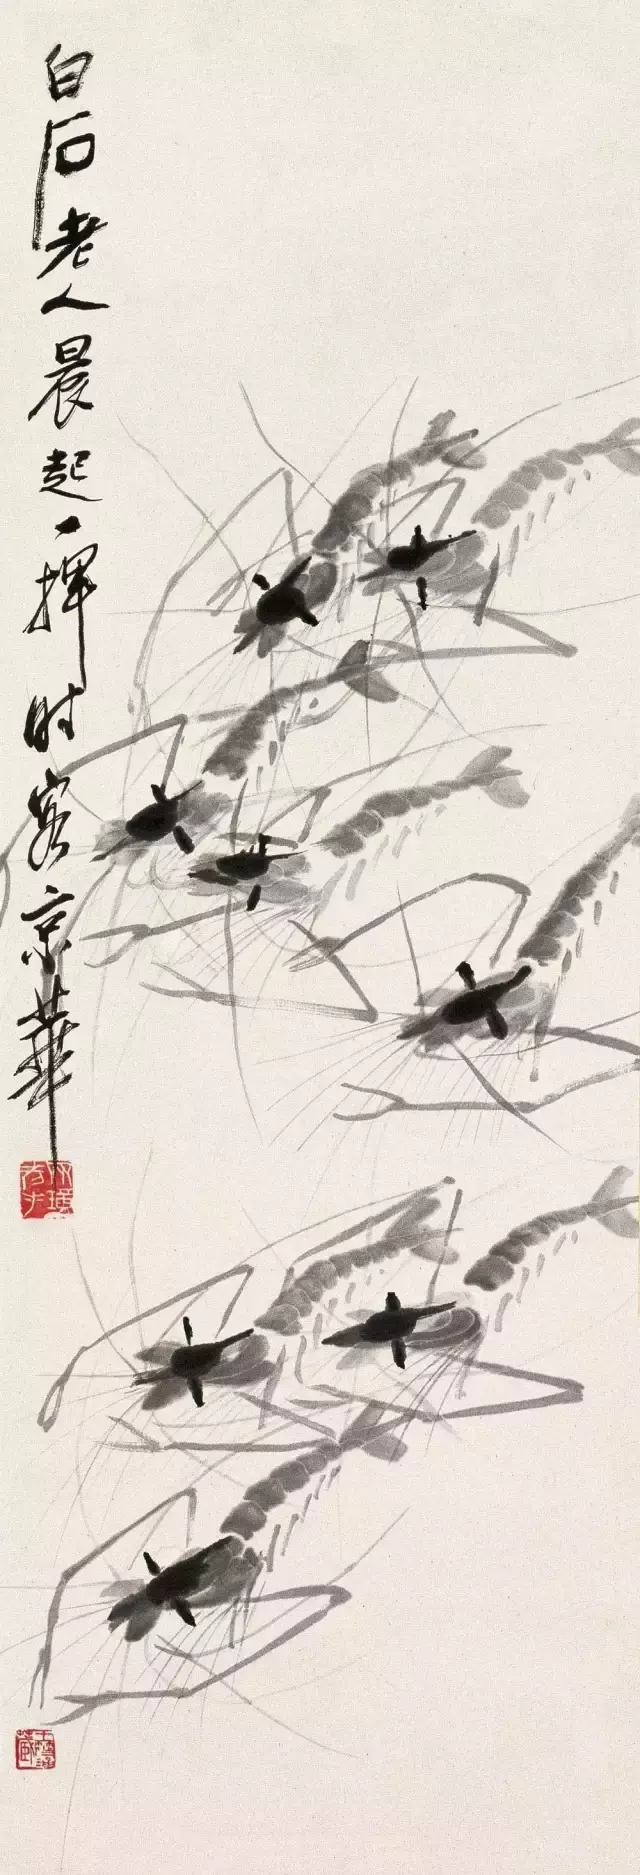 白石老人晨起一揮时客京華